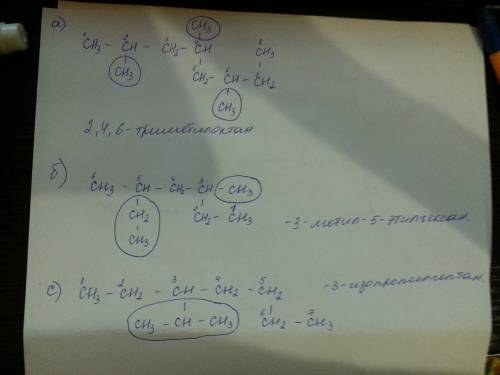 а)
CH₃
¹CH₃ – ²CH – ³CH₂ – ⁴CH ⁸CH₃
CH₃ ⁵CH₂ – ⁶CH – ⁷CH₂
CH₃
2,4,6-триметилоктан
б)
⁶CH₃ – ⁵CH – ⁴CH₂ – ³CH – CH₃
CH₂ ²CH₂ – ¹CH₃ -3-метил-5-этилгексан.
CH₃
с) ¹CH₃ – ²CH₂ – ³CH – ⁴CH₂ – ⁵CH₂ -3-изопропилгептан.
CH₃ – CH – CH₃ ⁶CH₂ – ⁷CH₃